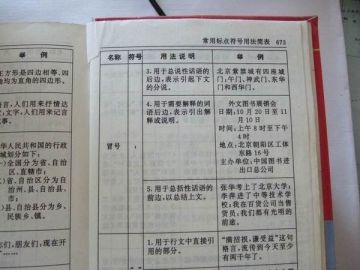 常用标点符号用法简表 673
方形是四边相等、四
均为直角的四边形。
人们用来抒情达
文字，人们用来记言
事。
华人民共和国的行政
域划分如下：
)全国分为省、自治
区、直辖市；
)省、自治区分为自
治州、县、自治县、
市；
)县、自治县分为乡、
民族乡、镇。
们，朋友们，现在开
名称 符号 用法说明 举例
冒号
3.用于总说性话语的
后边，表示引起下文
的分说。
北京紫禁城有四座城
门：午门、神武门、东华
门和西华门。
4.用于需要解释的词
语后边，表示引出解
释或说明。
外文图书展销会
日期：10月20日至11
月10日
时间：上午8时至下午
4时
地点：北京朝阳区工体
东路16号
主办单位：中国图书进
出口总公司
5.用于总括性话语的
前边，以总结上文。
张华考上了北京大学；
李萍进了中等技术学
校；我在百货公司当售
货员：我们都有光明的
前途。
1.用于行文中直接引
用的部分。
“满招损，谦受益”这句
格言，流传到今天至少
有两千年了。